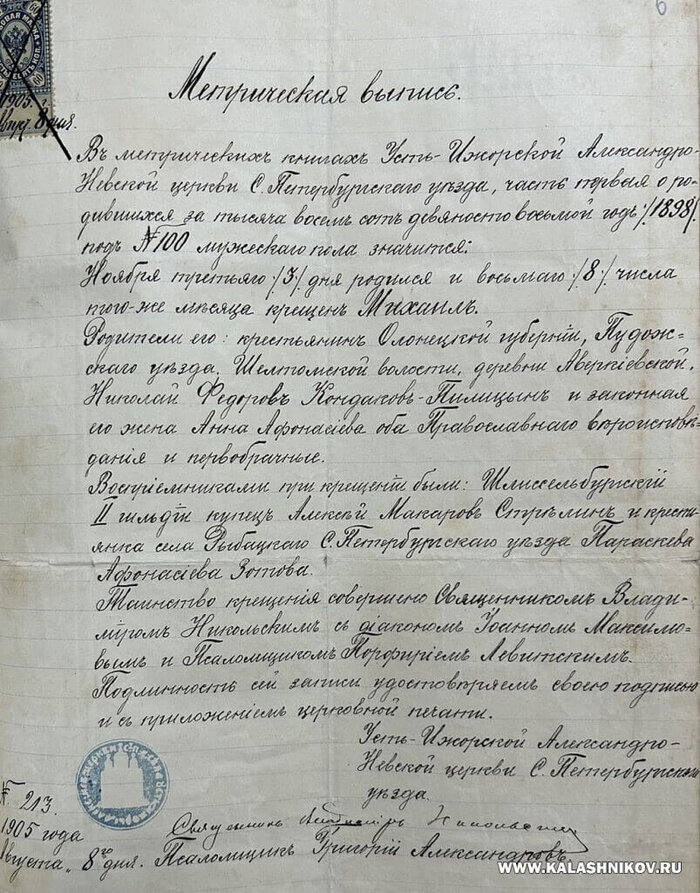 6
60
60
1905.
Авг. 8 дня.
Метрическая выпись.
Въ метрическихъ книгахъ Усть-Ижорской Александро-
Невской церкви С. Петербургскаго уѣзда, часть первая о ро-
дившихся за тысяча восемь сотъ девяносто восьмой годъ /:1898:/
подъ № 100 мужескаго пола значится:
Ноября третьяго /:3:/ дня родился и восьмаго /:8:/ числа
того-же мѣсяца крещенъ Михаилъ.
Родители его: крестьянинъ Олонецкой губерніи, Пудож-
скаго уѣзда, Шелтомской волости, деревни Аверкіевской,
Николай Федоровъ Кондаковъ-Пилицынъ и законная
его жена Анна Афонасіева оба Православнаго вѣроисповѣ-
данія и первобрачные.
Воспріемниками при крещеніи были: Шлиссельбургскій
II гильдіи купецъ Алексѣй Макаровъ Стрѣлинъ и кресть-
янка села Рыбацкаго С. Петербургскаго уѣзда Параскева
Афонасіева Зотова.
Таинство крещенія совершено Священникомъ Влади-
міромъ Никольскимъ съ діакономъ Іоанномъ Максимо-
вымъ и Псаломщикомъ Порфиріемъ Левитскимъ.
Подлинность сей записи удостовѣряемъ своею подписью
и съ приложеніемъ церковной печати.
Усть-Ижорской Александро-
Невской церкви С. Петербургскаго
уѣзда.
№ 213.
1905 года
Августа „ 8го дня.
Священникъ Владиміръ Никольскій
Псаломщикъ Григорій Александровъ.
WWW.KALASHNIKOV.RU